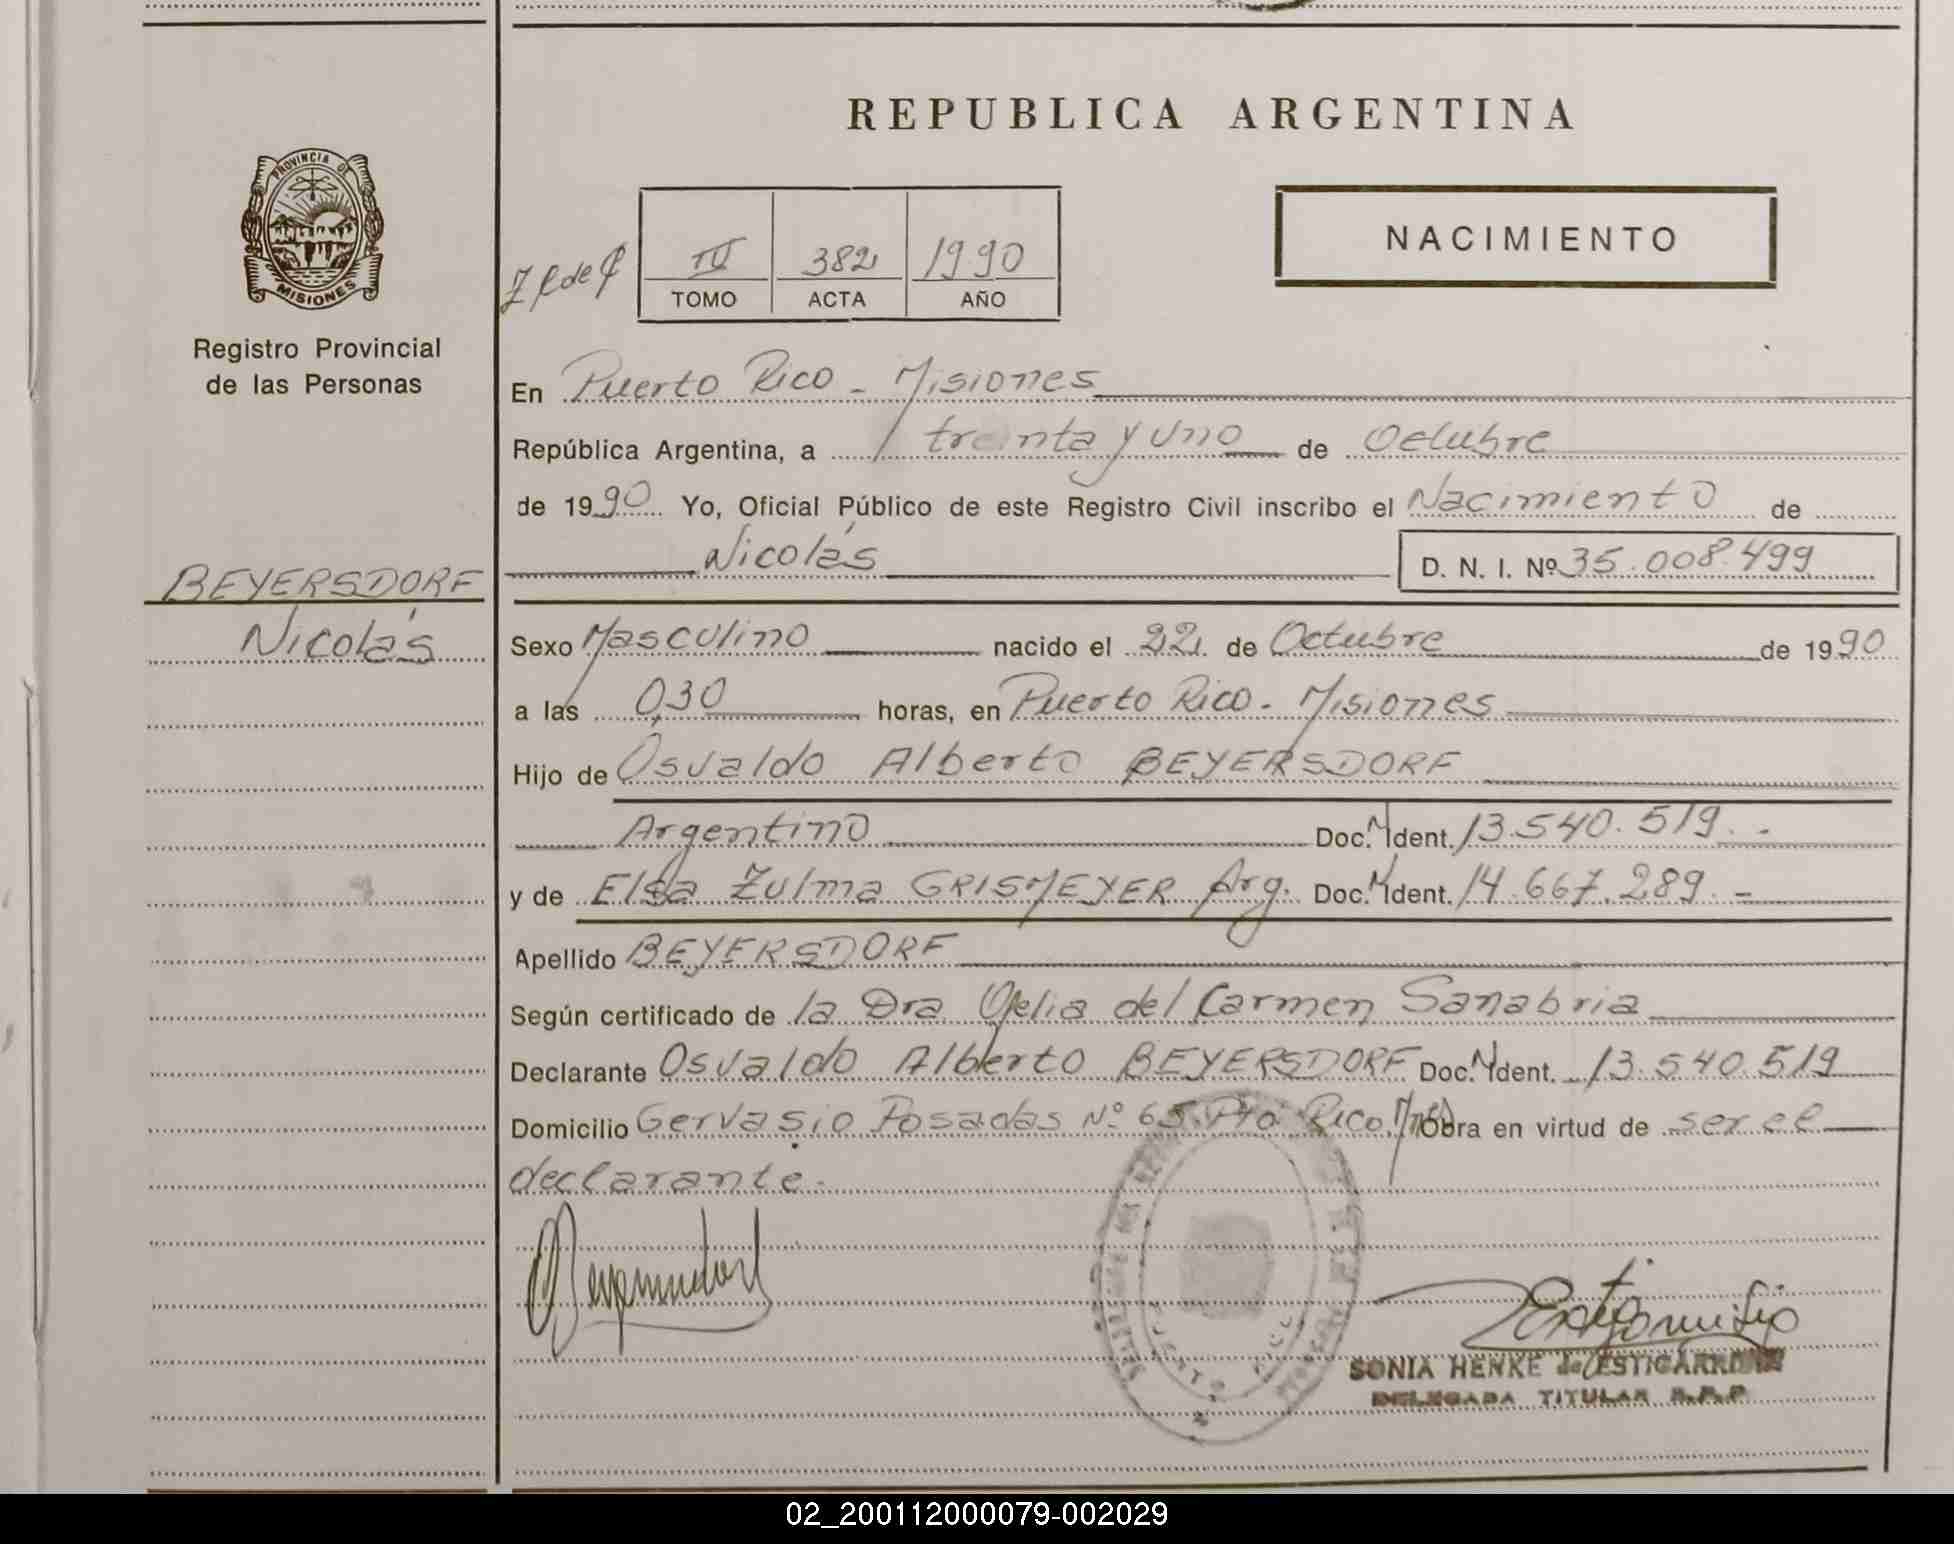 REPUBLICA ARGENTINA
PROVINCIA DE
MISIONES
Registro Provincial
de las Personas
III 382 1990
TOMO ACTA AÑO
NACIMIENTO
En Puerto Rico - Misiones
República Argentina, a treinta y uno de Octubre
de 1990 Yo, Oficial Público de este Registro Civil inscribo el Nacimiento de
Nicolás D. N. I. Nº 35.008.499
BEYERSDORF
Nicolás
Sexo Masculino nacido el 22 de Octubre de 1990
a las 0,30 horas, en Puerto Rico - Misiones
Hijo de Osvaldo Alberto BEYERSDORF
Argentino Doc. N Ident. 13.540.519.-
y de Elsa Zulma GRISMEYER Arg. Doc. N Ident. 14.667.289.-
Apellido BEYERSDORF
Según certificado de la Dra Ofelia del Carmen Sanabria
Declarante Osvaldo Alberto BEYERSDORF Doc. N Ident. 13.540.519
Domicilio Gervasio Posadas Nº 65. Pto Rico. Mnes Obra en virtud de ser el
declarante.
SONIA HENKE de ESTIGARRIBIA
DELEGADA TITULAR R.P.P
02_200112000079-002029